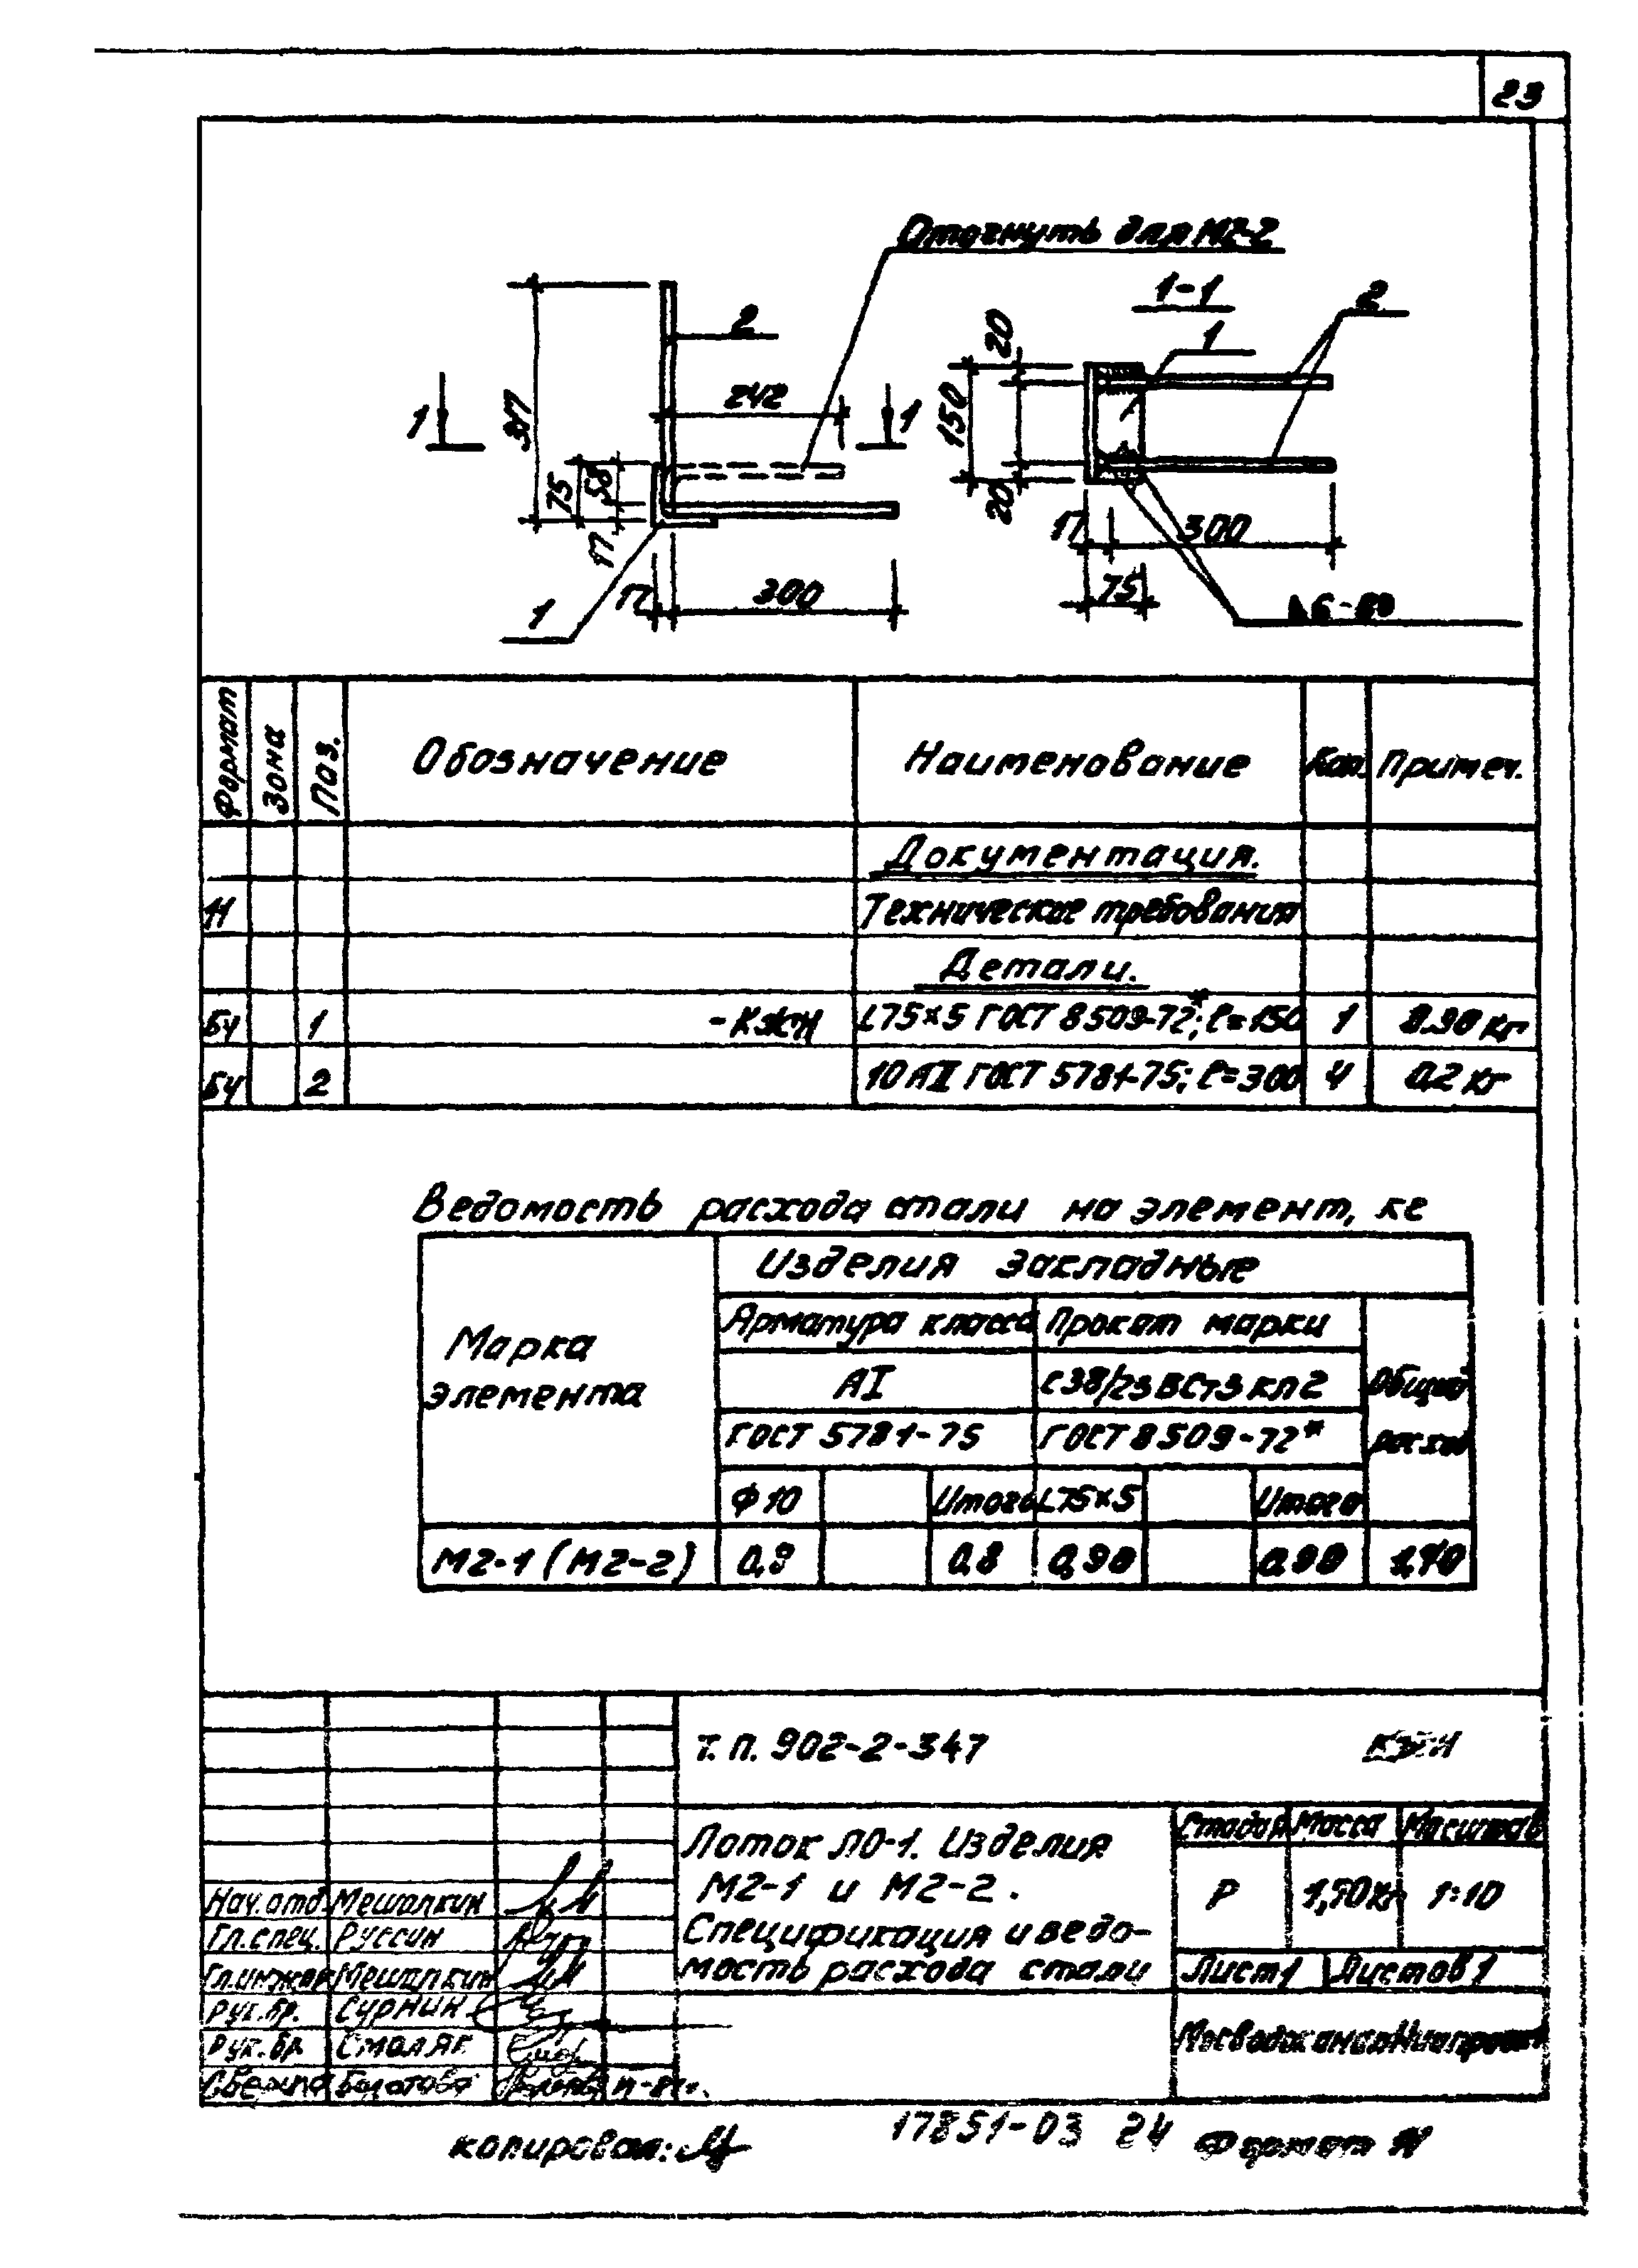 23
Отогнуть для М2-2
1-1
2
2
1
20
242
317
150
1
1
75
58
17
20
17
300
17
300
75
1
Формат
Зона
Поз.
Обозначение
Наименование
Кол.
Примеч.
Документация.
Технические требования
Детали.
БЧ 1 -КЖН L75×5 ГОСТ 8509-72*; ℓ=150 1 0.90 кг
БЧ 2 10 АII ГОСТ 5781-75; ℓ=300 4 0,2 кг
Ведомость расхода стали на элемент, кг
Марка элемента
Изделия закладные
Арматура класса Прокат марки
АI С38/23 ВСт3кп2 Общий
ГОСТ 5781-75 ГОСТ 8509-72* расход
Ф10 Итого L75×5 Итого
М2-1 (М2-2) 0,8 0,90 0,90 1,70
т.п. 902-2-347 КЖН
Лоток ЛО-1. Изделия
М2-1 и М2-2.
Спецификация и ведо-
мость расхода стали
Стадия Масса Масштаб
Р 1:10
Лист 1 Листов 1
Нач.отд. Мешалкин
Гл.спец. Руссин
Гл.инж.пр Мешалкин
Рук.бр. Сурнин
Рук.бр. Смоляк
МосводоканалНИИпроект
копировал:
17851-03 24
Формат